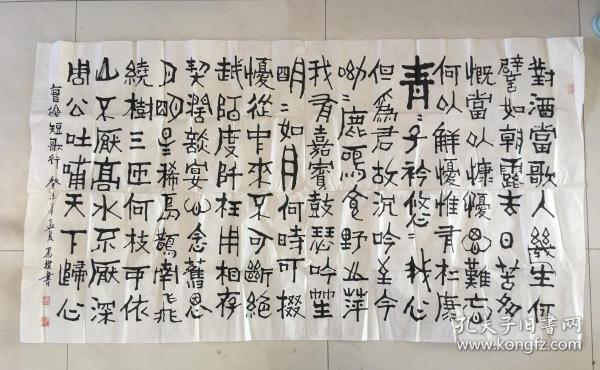 對酒當歌人幾生何
譬如朝露去日苦多
慨當以慷憂思難忘
何以解憂惟有杜康
青〻子衿悠〻我心
但為君故沉吟至今
呦〻鹿鳴食野之萍
我有嘉賓鼓瑟吹笙
明〻如月何時可掇
憂從中來不可斷絕
越陌度阡枉用相存
契闊談宴心念舊恩
月明星稀烏鵲南飛
繞樹三匝何枝可依
山不厭高水不厭深
周公吐哺天下歸心
曹操短歌行 書
孔夫子旧书网
www.kongfz.com